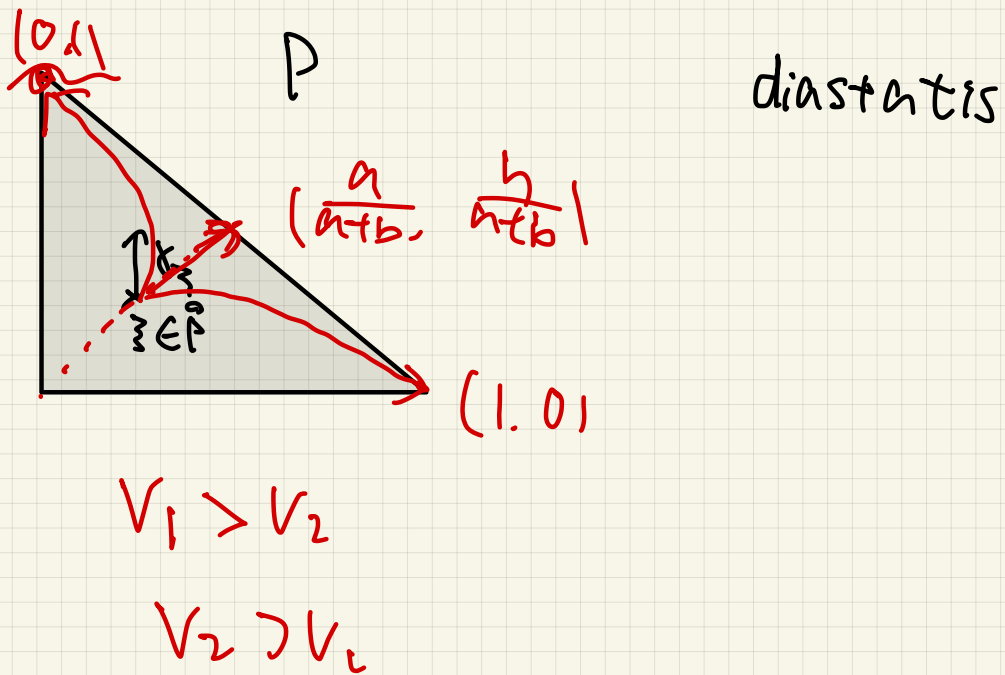 (0,1)
P
diastatis
(a/(a+b), b/(a+b))
ξ ∈ P°
(1.0)
V₁ > V₂
V₂ > V₁